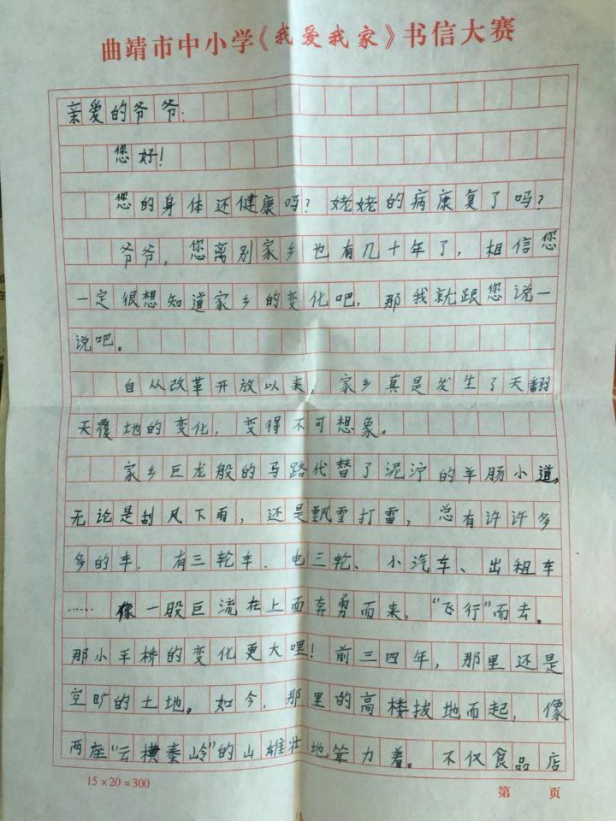 曲靖市中小学《我爱我家》书信大赛
亲爱的爷爷:
您好!
您的身体还健康吗?姥姥的病康复了吗?
爷爷,您离别家乡也有几十年了,相信您
一定很想知道家乡的变化吧,那我就跟您说一
说吧。
自从改革开放以来,家乡真是发生了天翻
天覆地的变化,变得不可想象。
家乡巨龙般的马路代替了泥泞的羊肠小道。
无论是刮风下雨,还是飘雪打雷,总有许许多
多的车,有三轮车、电三轮、小汽车、出租车
……像一股巨流在上面奔勇而来,“飞行”而去。
那小羊桥的变化更大哩!前三四年,那里还是
空旷的土地。如今,那里的高楼拔地而起,像
两座“云横秦岭”的山雄壮地耸力着。不仅食品店
15×20=300
第 页